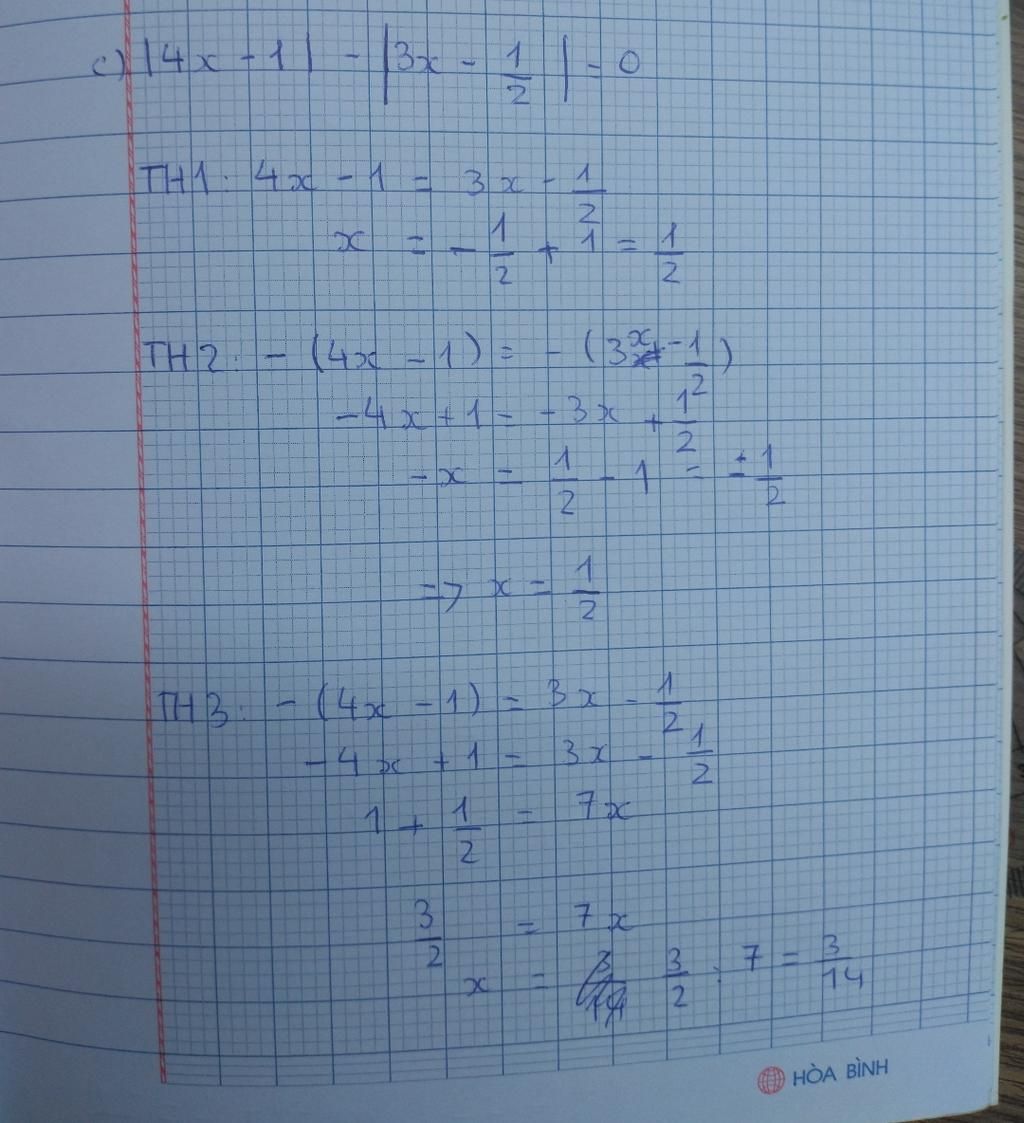 c) |4x - 1| - |3x - 1/2| = 0
TH1: 4x - 1 = 3x - 1/2
x = - 1/2 + 1 = 1/2
TH2: - (4x - 1) = - (3x - 1/2)
-4x + 1 = -3x + 1/2
-x = 1/2 - 1 = - 1/2
=> x = 1/2
TH3: - (4x - 1) = 3x - 1/2
-4x + 1 = 3x - 1/2
1 + 1/2 = 7x
3/2 = 7x
x = 3/2 : 7 = 3/14
HÒA BÌNH